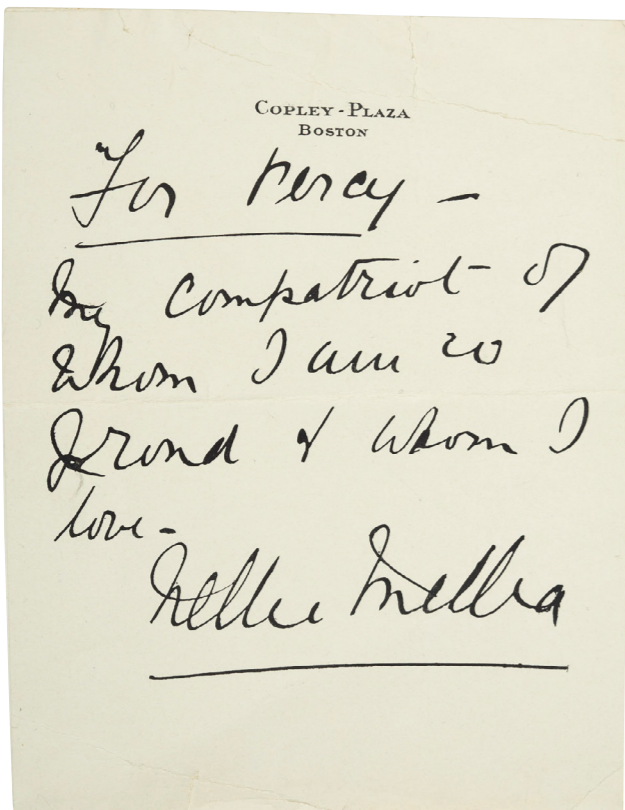 COPLEY-PLAZA
BOSTON
For Percy –
My compatriot of
whom I am so
proud & whom I
love –
Nellie Melba